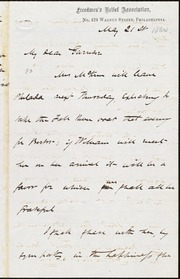 Freedmen's Relief Association,
No. 424 Walnut Street, Philadelphia.
May 21st
My dear Garrison
Mrs. McKim will leave
Philada next Thursday expecting to
take the Fall River boat that evening
for Boston; if William will meet
her on her arrival it will be a
favor for which we shall all be
grateful
I shall share with her by
sympathy, in the happiness of the